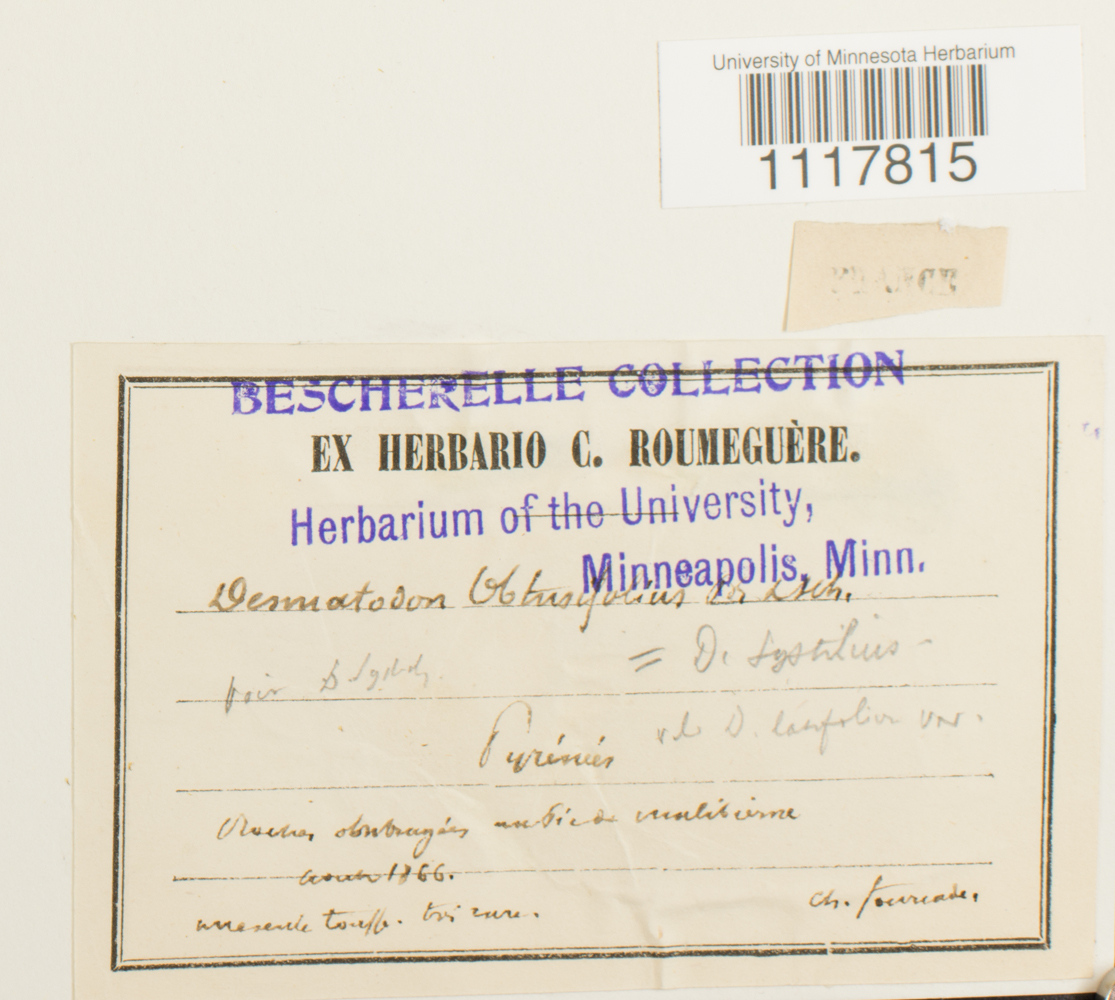 University of Minnesota Herbarium
1117815
FRANCE
BESCHERELLE COLLECTION
EX HERBARIO C. ROUMEGUÈRE.
Herbarium of the University,
Minneapolis, Minn.
Desmatodon Obtusifolius
= D. systilius -
voir D.
Pyrénées
D. latifolius var.
Roches ombragées au Pic de
aout 1866.
une seule touffe. très rare.
ch. fourcade.